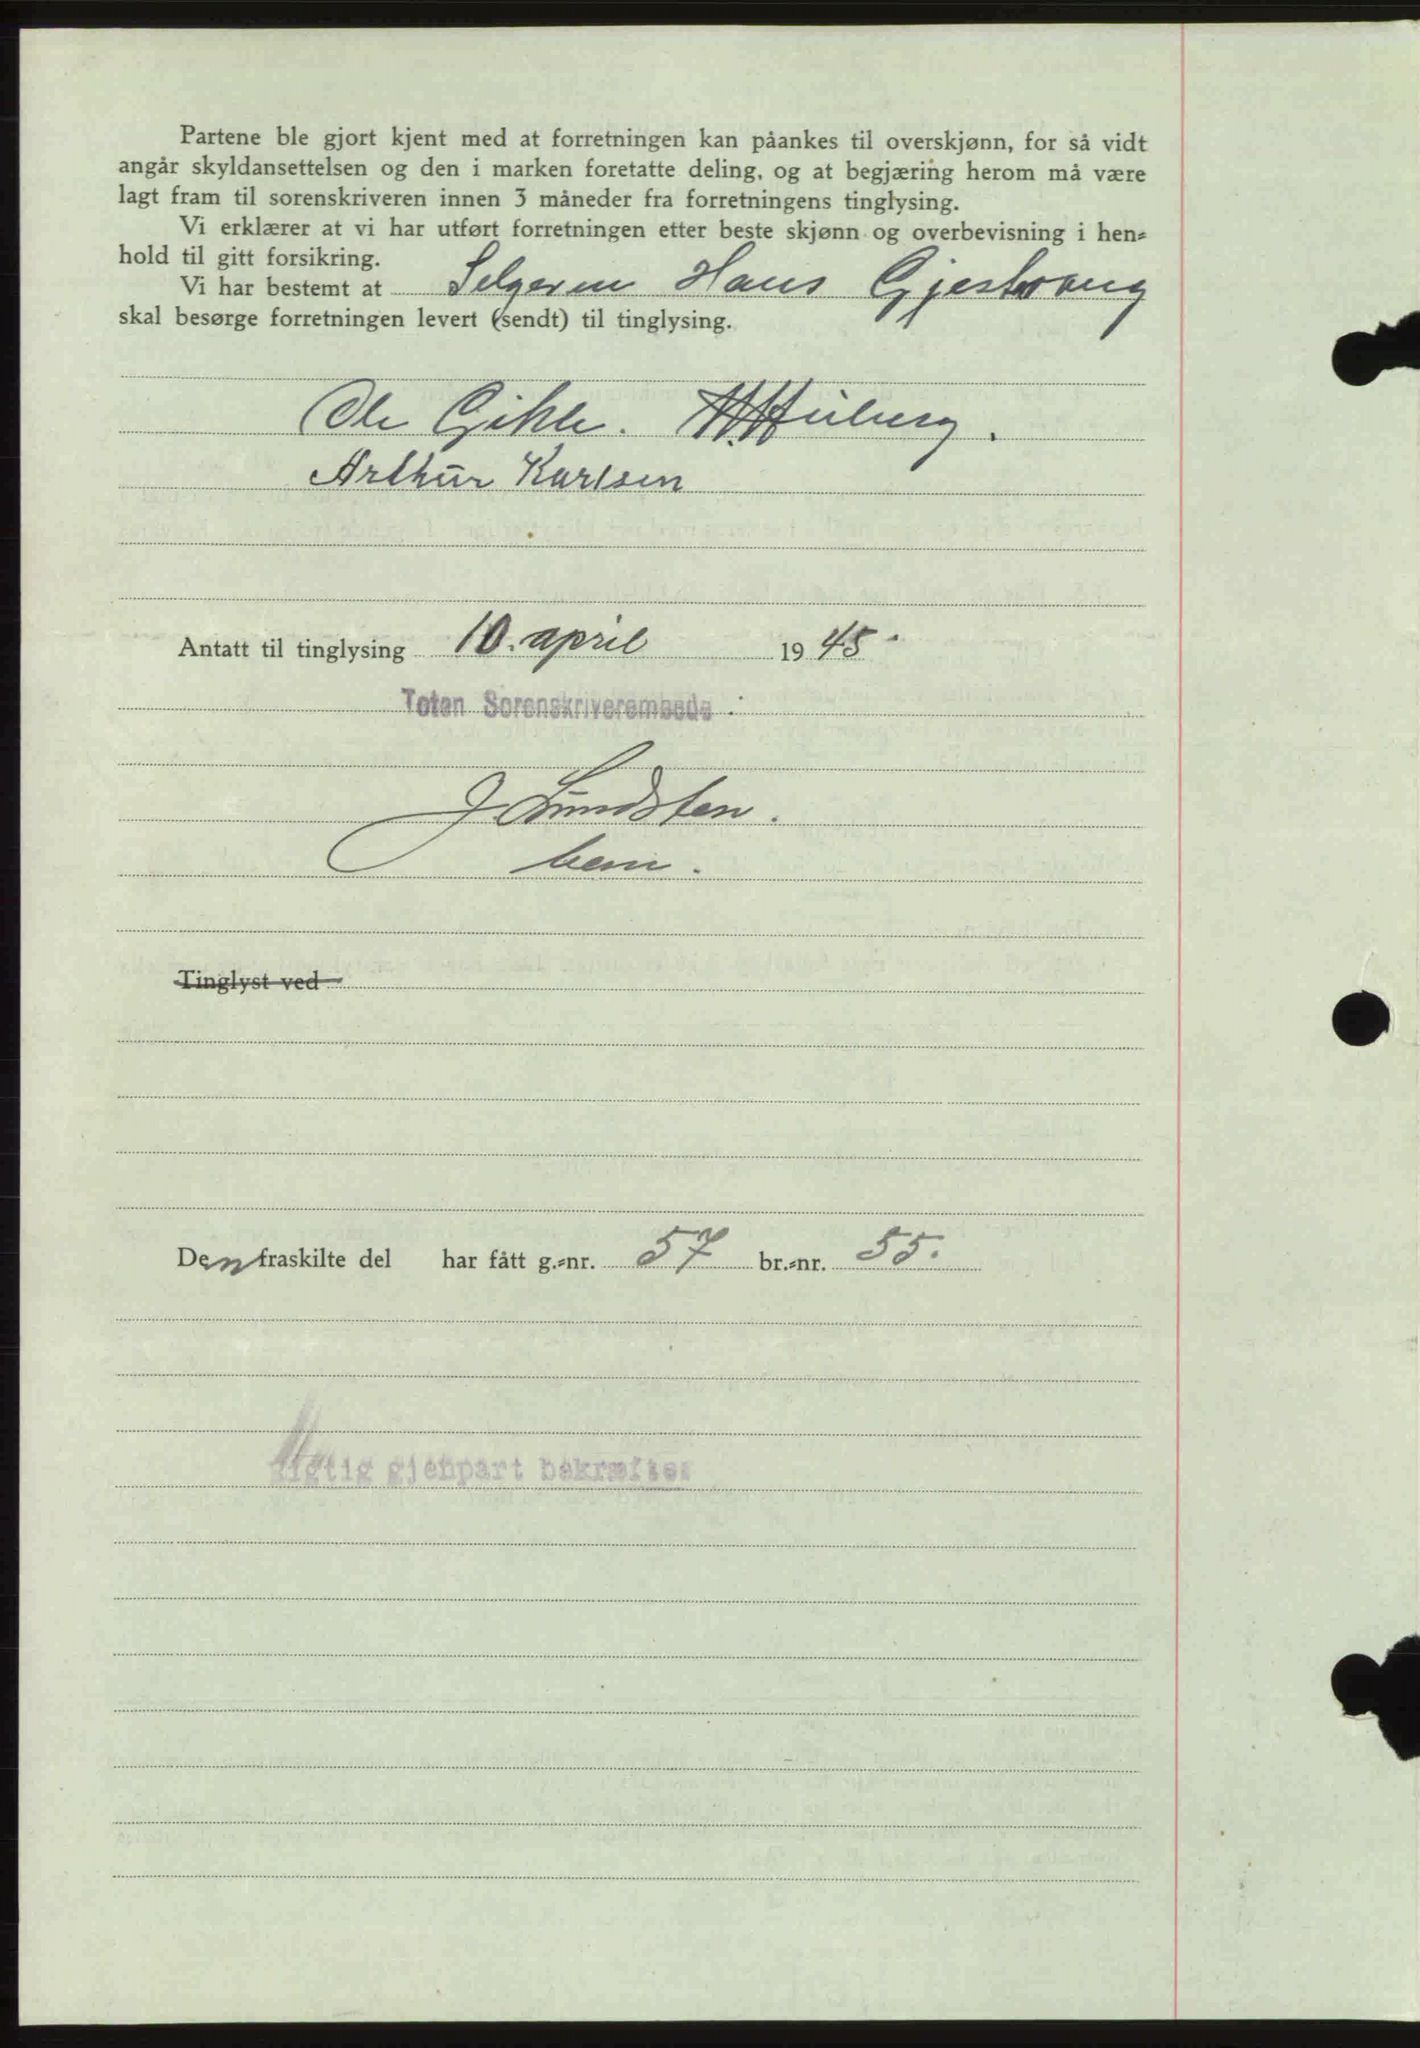 Partene ble gjort kjent med at forretningen kan påankes til overskjønn, for så vidt
angår skyldansettelsen og den i marken foretatte deling, og at begjæring herom må være
lagt fram til sorenskriveren innen 3 måneder fra forretningens tinglysing.
Vi erklærer at vi har utført forretningen etter beste skjønn og overbevisning i hen-
hold til gitt forsikring.
Vi har bestemt at Selgeren Hans Gjestvang
skal besørge forretningen levert (sendt) til tinglysing.
Ole Gihle.
Arthur Karlsen
Antatt til tinglysing 10. april 1945.
Toten Sorenskriverembede
J. Lundsten.
Tinglyst ved
Den fraskilte del har fått g.-nr. 57 br.-nr. 55.
Rigtig gjenpart bekræftes